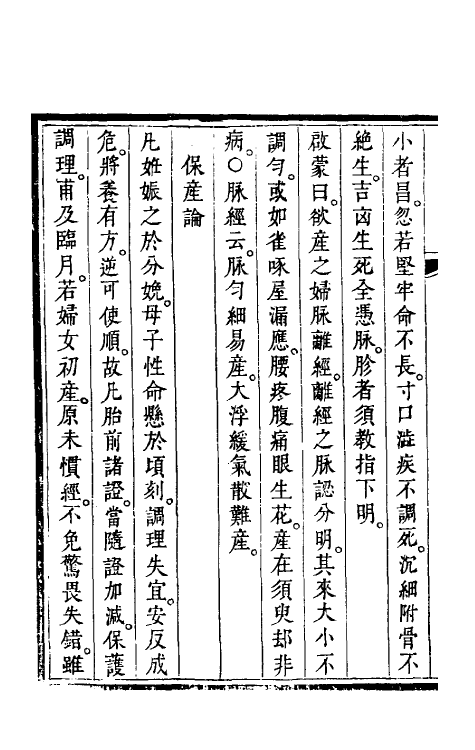 小者昌。忽若堅牢命不長。寸口澁疾不調死。沉細附骨不
絶生。吉凶生死全憑脉。胗者須教指下明。
啟蒙曰。欲産之婦脉離經。離經之脉認分明。其來大小不
調匀。或如雀啄屋漏應。腰疼腹痛眼生花。産在須臾却非
病。○脉經云。脉匀細易産。大浮緩氣散難産。
保産論
凡姙娠之於分娩。母子性命懸於頃刻。調理失宜。安反成
危。將養有方。逆可使順。故凡胎前諸證。當隨證加減。保護
調理。甫及臨月。若婦女初産。原未慣經。不免驚畏失錯。雖